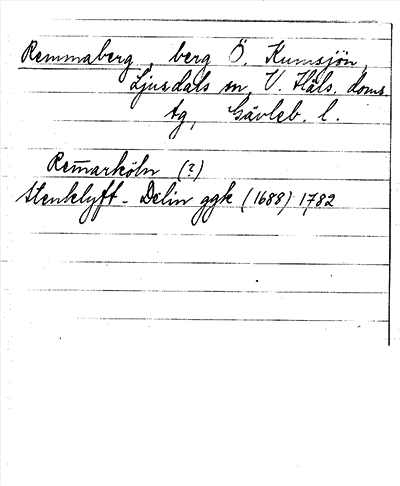 Remmaberg, berg Ö. Kumsjön,
Ljusdals sn, V. Häls. doms.
tg, Gävleb. l.
Rem̄arköln (?)
Stenklyft - Delin ggk (1688) 1782